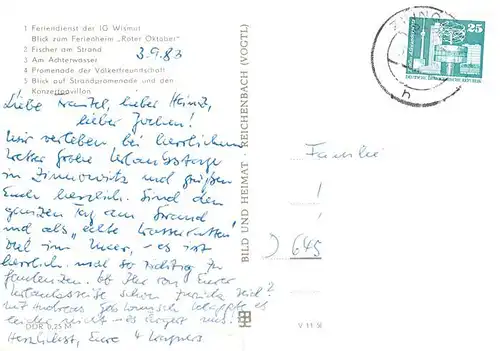 1 Feriendienst der IG Wismut
Blick zum Ferienheim „Roter Oktober"
2 Fischer am Strand
3 Am Achterwasser
4 Promenade der Völkerfreundschaft
5 Blick auf Strandpromenade und den
Konzertpavillon
3.9.83
Liebe lieber Heinz,
lieber Jochen!
Wir verleben bei herrlichem
Wetter frohe Urlaubstage
in Zinnowitz und grüßen
Euch herzlich. Sind den
ganzen Tag am Strand
und als „echte Wasserratten"
viel im Meer, – es ist
herrlich, mal so richtig zu
faulenzen. Ob Ihr von Eurer
Urlaubsreise schon zurück seid?
Mit Andreas klappte es
leider nicht – es
Herzlichst, Eure 4
DDR 0,25 M
BILD UND HEIMAT · REICHENBACH (VOGTL)
V 11 5
25
DDR
h
Familie
645